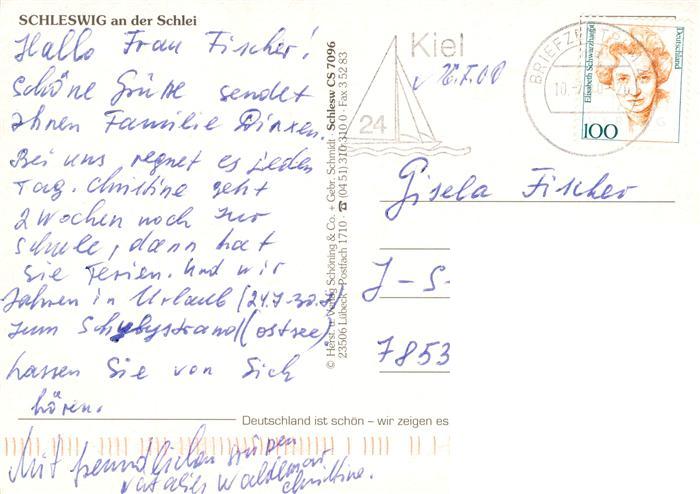 SCHLESWIG an der Schlei
Hallo Frau Fischer!
Schöne Grüße sendet
Ihnen Familie
Bei uns regnet es jeden
Tag. Christine geht
2 Wochen noch zur
Schule, dann hat
sie Ferien. Und wir
fahren in Urlaub (24.7-30.7)
zum Schubystrand (ostsee).
Lassen Sie von Sich
hören.
Mit freundlichen grüßen
Waldemar
Christine.
© Herst. u. Verlag Schöning & Co. + Gebr. Schmidt · Schlesw CS 7096
23506 Lübeck · Postfach 1710 · ☎ (04 51) 310 310 0 · Fax 3 52 83
Kiel
24
BRIEFZENTRUM
Elisabeth Schwarzhaupt
Deutschland
100
Gisela Fischer
J-S-
7853
Deutschland ist schön – wir zeigen es